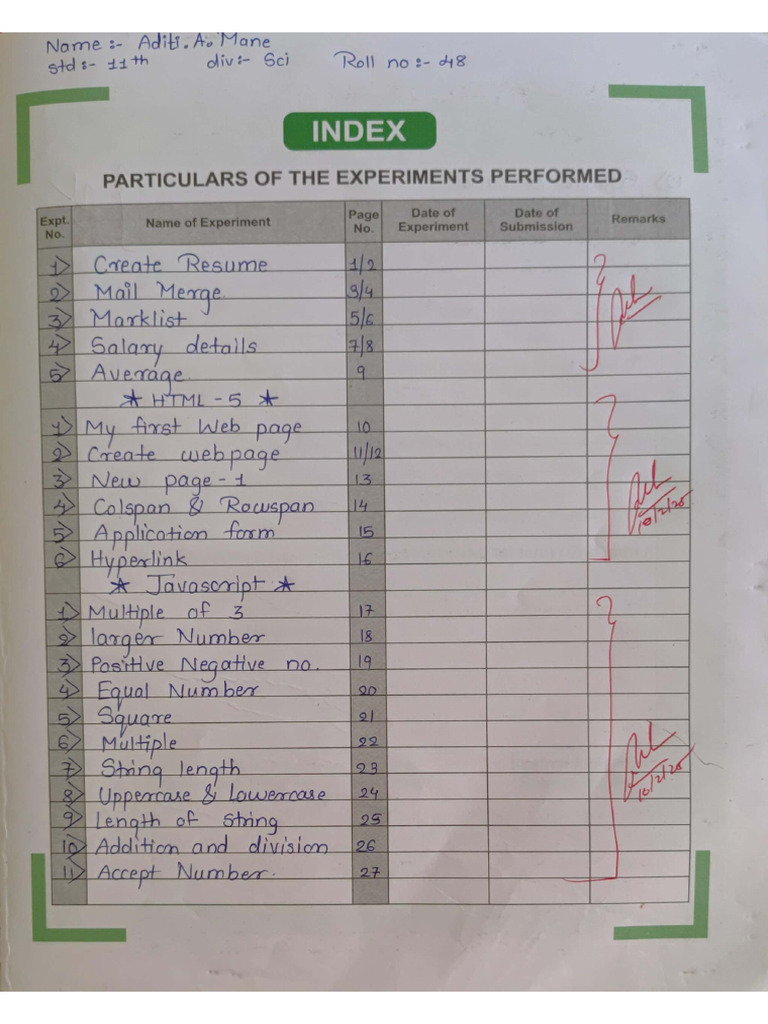 Name :- Aditi. A. Mane
std :- 11th div :- Sci Roll no :- 48
INDEX
PARTICULARS OF THE EXPERIMENTS PERFORMED
Expt. No. Name of Experiment Page No. Date of Experiment Date of Submission Remarks
1) Create Resume 1/2
2) Mail Merge 3/4
3) Marklist 5/6
4) Salary details 7/8
5) Average 9
* HTML - 5 *
1) My first Web page 10
2) Create webpage 11/12
3) New page - 1 13
4) Colspan & Rowspan 14
5) Application form 15
10/2/25
6) Hyperlink 16
* Javascript *
1) Multiple of 3 17
2) larger Number 18
3) Positive Negative no. 19
4) Equal Number 20
5) Square 21
6) Multiple 22
7) String length 23
8) Uppercase & Lowercase 24
10/2/25
9) Length of string 25
10) Addition and division 26
11) Accept Number. 27